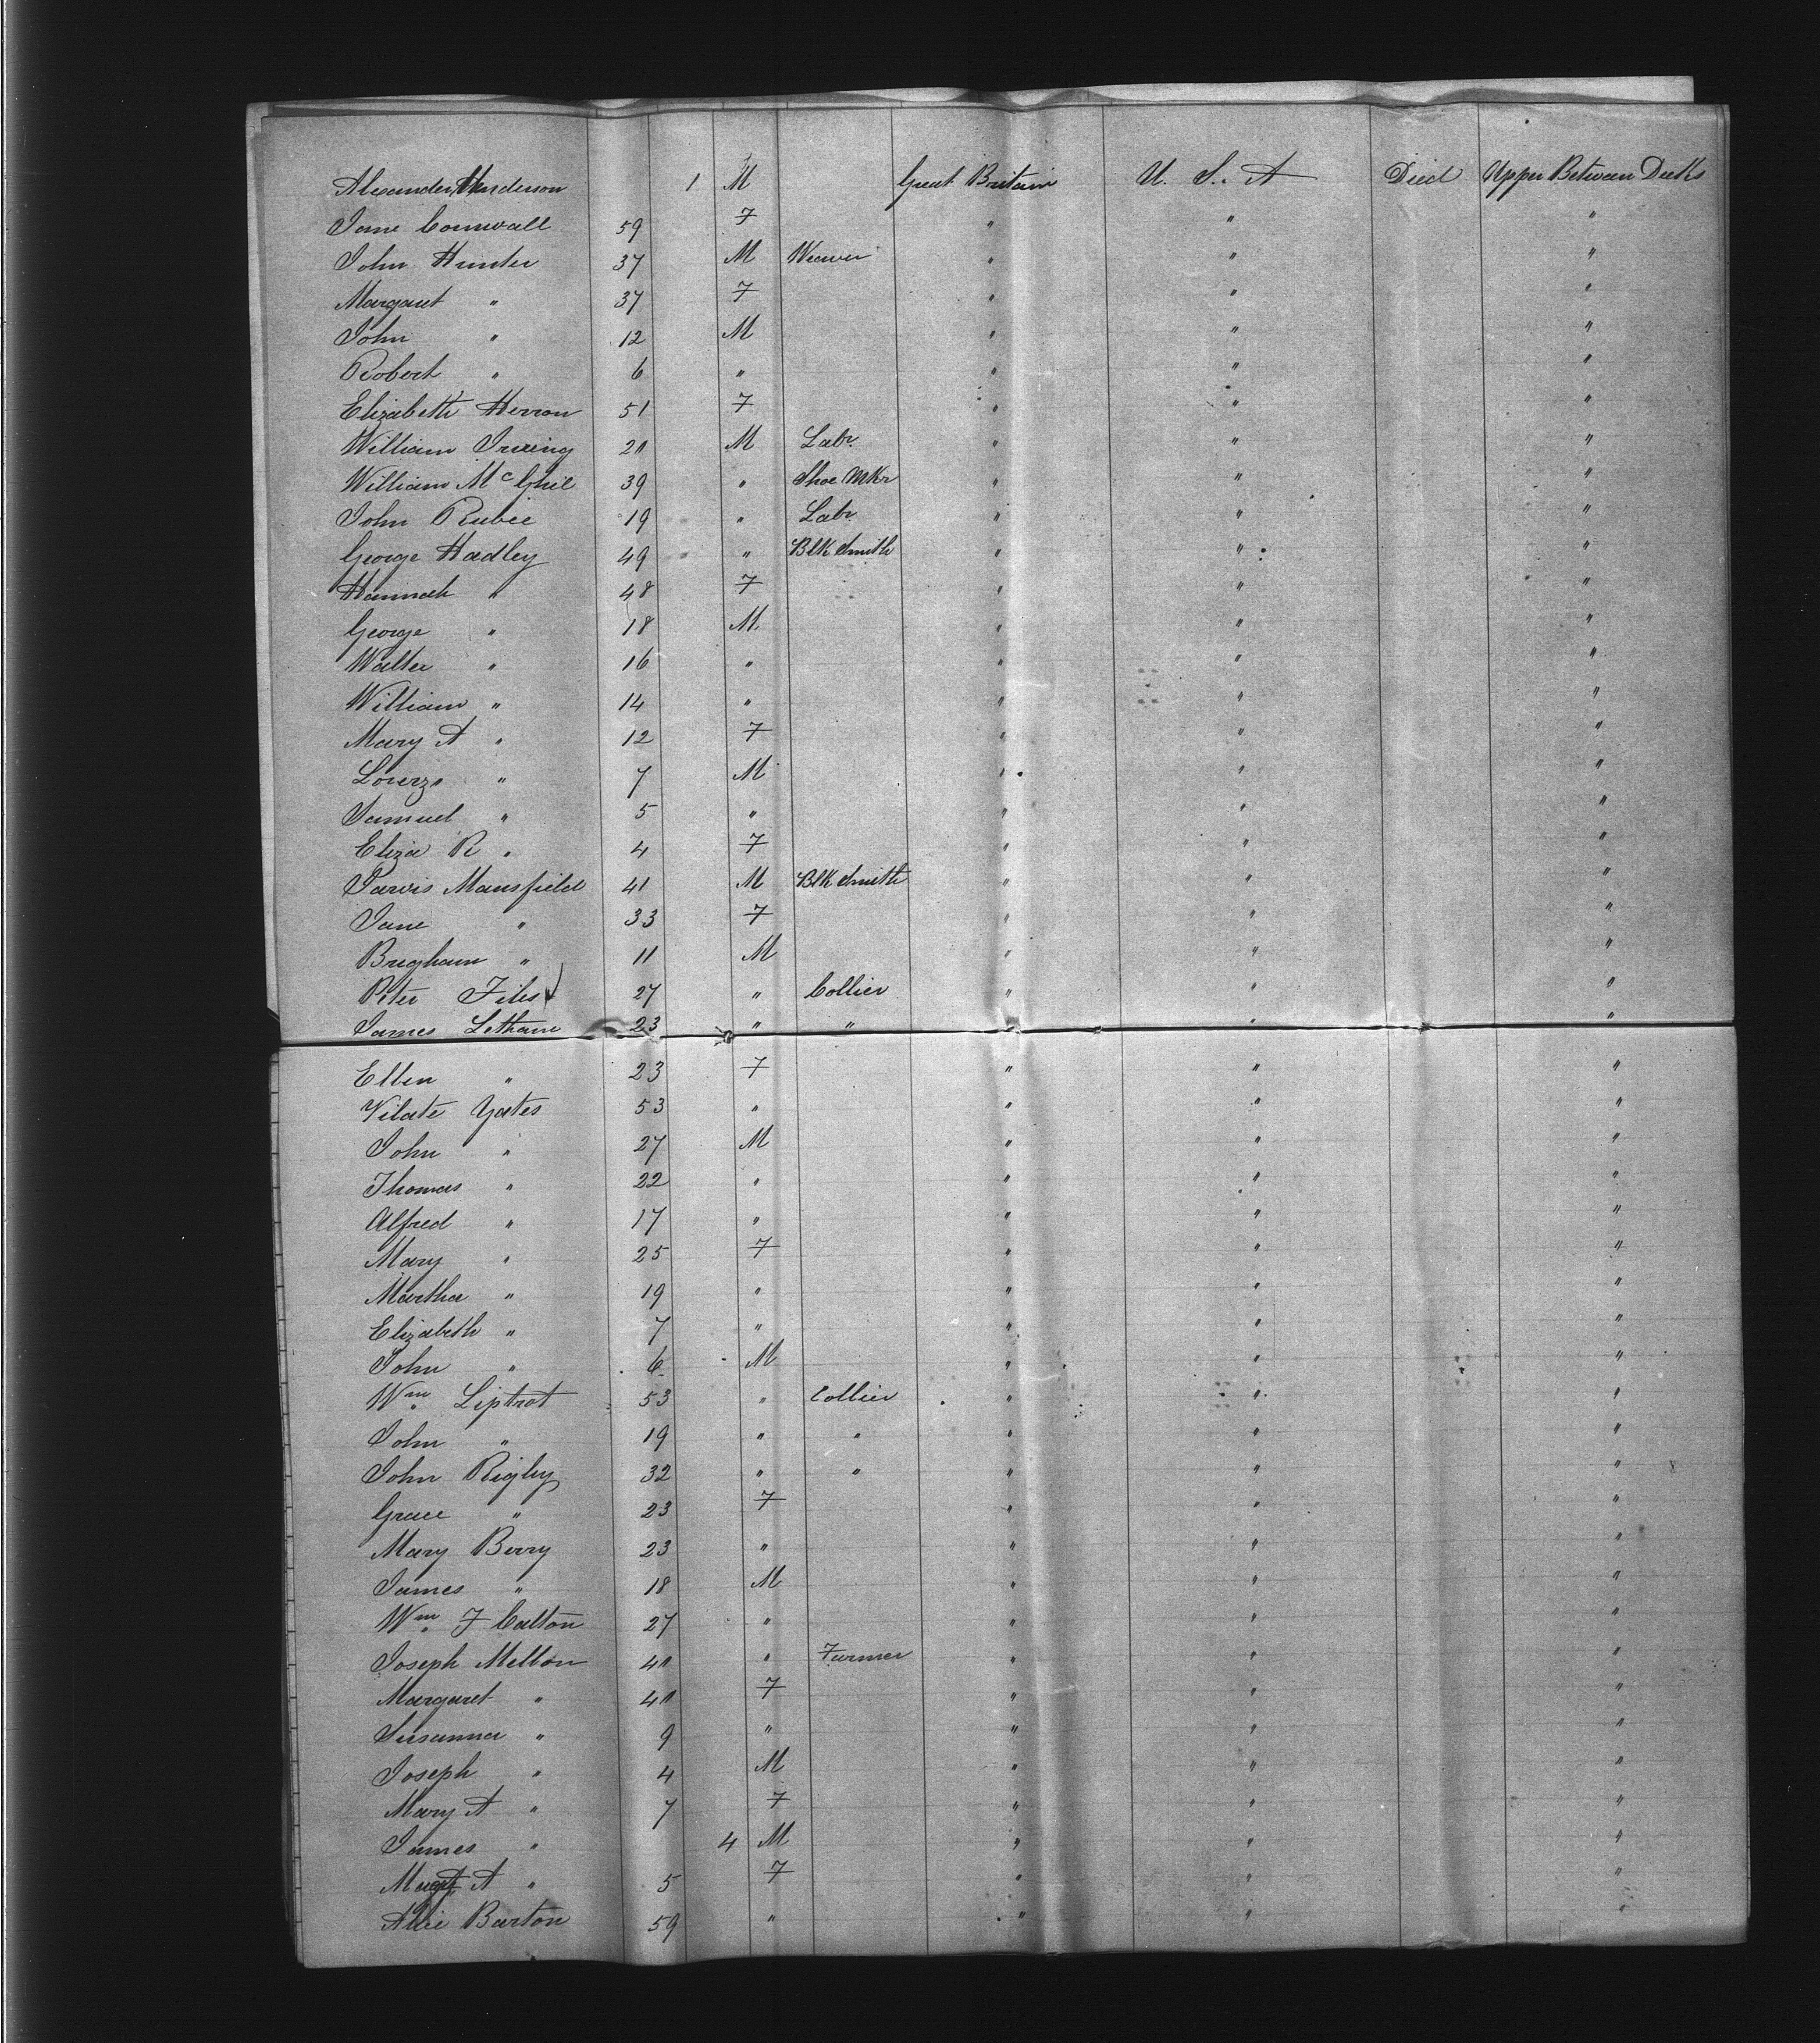 Alexander Henderson 1 M Great Britain U. S. A Died Upper Between Decks
Jane Cornwall 59 F " " "
John Hunter 37 M Weaver " " "
Margaret " 37 F " " "
John " 12 M " " "
Robert " 6 " " " "
Elizabeth Herron 51 F " " "
William Irving 20 M Labr. " " "
William Mc Ghie 39 " Shoe Mkr " " "
John Rubie 19 " Labr. " " "
George Hadley 49 " Blk Smith " " "
Hannah " 48 F " " "
George " 18 M " " "
Walter " 16 " " " "
William " 14 " " " "
Mary A " 12 F " " "
Lorenzo " 7 M " " "
Samuel " 5 " " " "
Eliza R " 4 F " " "
Jarvis Mansfield 41 M Blk Smith " " "
Jane " 33 F " " "
Brigham " 11 M " " "
Peter 27 " Collier " " "
James Letham 23 " " " " "
Ellen " 23 F " " "
Vilate Yates 53 " " " "
John " 27 M " " "
Thomas " 22 " " " "
Alfred " 17 " " " "
Mary " 25 F " " "
Martha " 19 " " " "
Elizabeth " 7 " " " "
John " 6 M " " "
Wm Liptrot 53 " Collier " " "
John " 19 " " " " "
John Rigby 32 " " " " "
Grace " 23 F " " "
Mary Berry 23 " " " "
James " 18 M " " "
Wm F Calton 27 " " " "
Joseph Mellon 40 " Farmer " " "
Margaret " 40 F " " "
Susanna " 9 " " " "
Joseph " 4 M " " "
Mary A " 7 F " " "
James " 4 M " " "
A " 5 F " " "
Alice Barton 59 " " " "